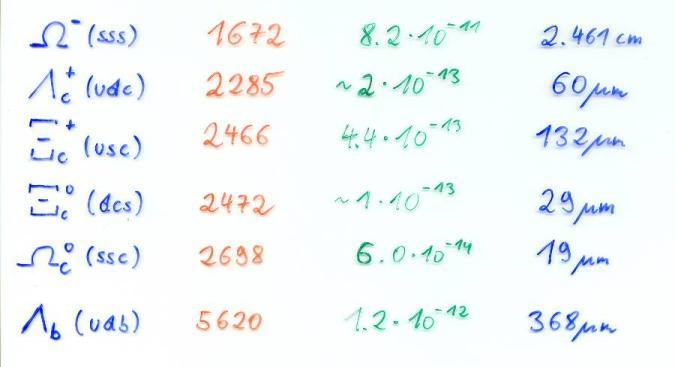 Ω⁻ (sss) 1672 8.2·10⁻¹¹ 2.461 cm
Λc⁺ (udc) 2285 ~2·10⁻¹³ 60 μm
Ξc⁺ (usc) 2466 4.4·10⁻¹³ 132 μm
Ξc⁰ (dcs) 2472 ~1·10⁻¹³ 29 μm
Ωc⁰ (ssc) 2698 6.0·10⁻¹⁴ 19 μm
Λb (udb) 5620 1.2·10⁻¹² 368 μm